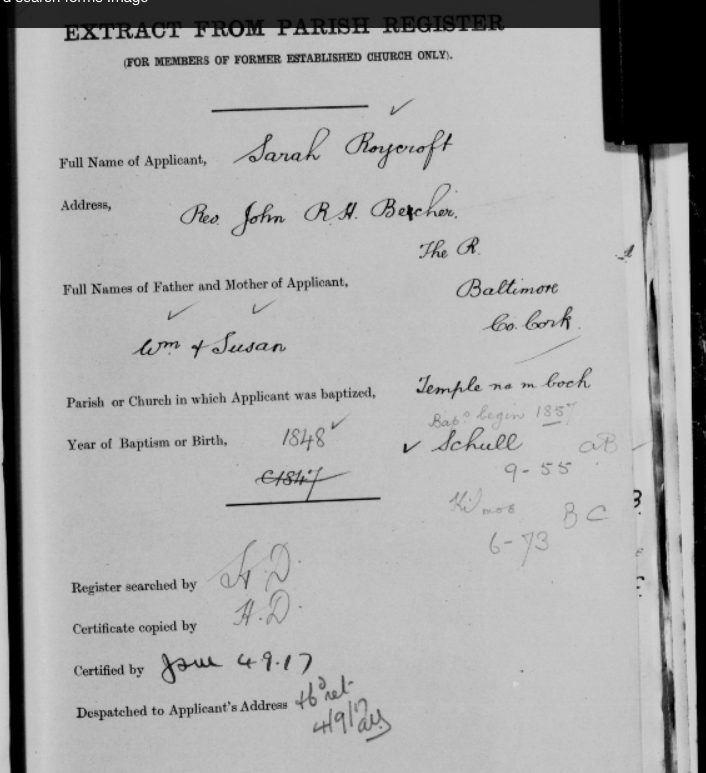 d search forms image
EXTRACT FROM PARISH REGISTER
(FOR MEMBERS OF FORMER ESTABLISHED CHURCH ONLY).
Full Name of Applicant, Sarah Roycroft
Address, Rev. John R. H. Becher.
The R.
Baltimore
Co. Cork.
Full Names of Father and Mother of Applicant,
Wm & Susan
Parish or Church in which Applicant was baptized, Temple na m boch
Baps begin 1857
Year of Baptism or Birth, 1848 Schull aB
C1847 9-55
Kilmoe BC
6-73
Register searched by H.D.
Certificate copied by H.D.
Certified by 4 9.17
Despatched to Applicant's Address
4/9/17